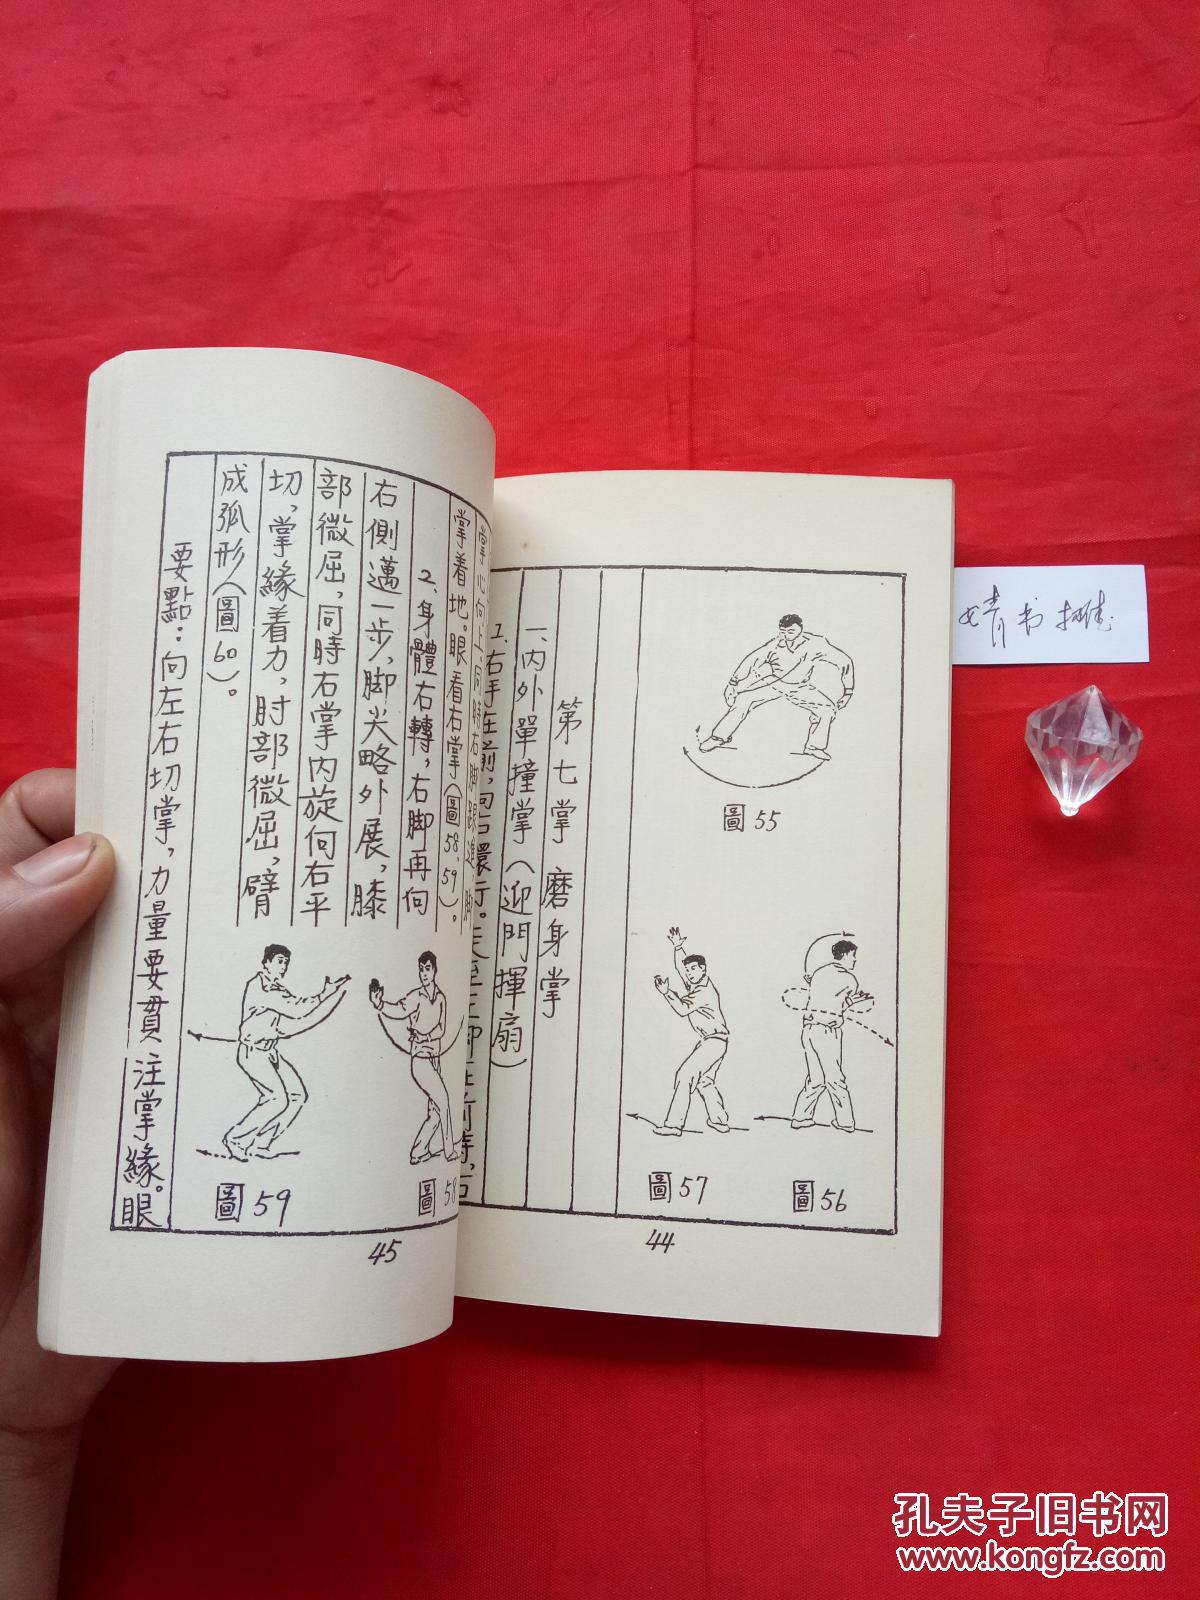 圖55
圖56
圖57
第七掌 磨身掌
一、內外單撞掌（迎門揮扇）
1、右手在前，向右環行。走至左脚在前時，右
44
掌心向上，同時右脚跟進，脚
掌着地。眼看右掌（圖58、59）。
2、身體右轉，右脚再向
右側邁一步，脚尖略外展，膝
部微屈，同時右掌內旋向右平
切，掌緣着力，肘部微屈，臂
成弧形（圖60）。
要點：向左右切掌，力量要貫注掌緣。眼
圖58
圖59
45
婧书摊
孔夫子旧书网
www.kongfz.com